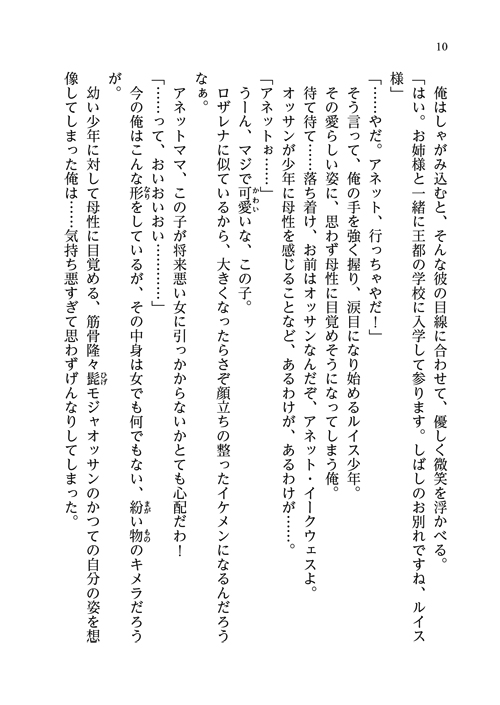 10
俺はしゃがみ込むと、そんな彼の目線に合わせて、優しく微笑を浮かべる。
「はい。お姉様と一緒に王都の学校に入学して参ります。しばしのお別れですね、ルイス
様」
「……やだ。アネット、行っちゃやだ!」
そう言って、俺の手を強く握り、涙目になり始めるルイス少年。
その愛らしい姿に、思わず母性に目覚めそうになってしまう俺。
待て待て……落ち着け、お前はオッサンなんだぞ、アネット・イークウェスよ。
オッサンが少年に母性を感じることなど、あるわけが、あるわけが……。
「アネットぉ……」
うーん、マジで可愛いな、この子。
ロザレナに似ているから、大きくなったらさぞ顔立ちの整ったイケメンになるんだろう
なぁ。
アネットママ、この子が将来悪い女に引っかからないかとても心配だわ!
「……って、おいおいおい…………」
今の俺はこんな形をしているが、その中身は女でも何でもない、紛い物のキメラだろう
が。
幼い少年に対して母性に目覚める、筋骨隆々髭モジャオッサンのかつての自分の姿を想
像してしまった俺は……気持ち悪すぎて思わずげんなりしてしまった。